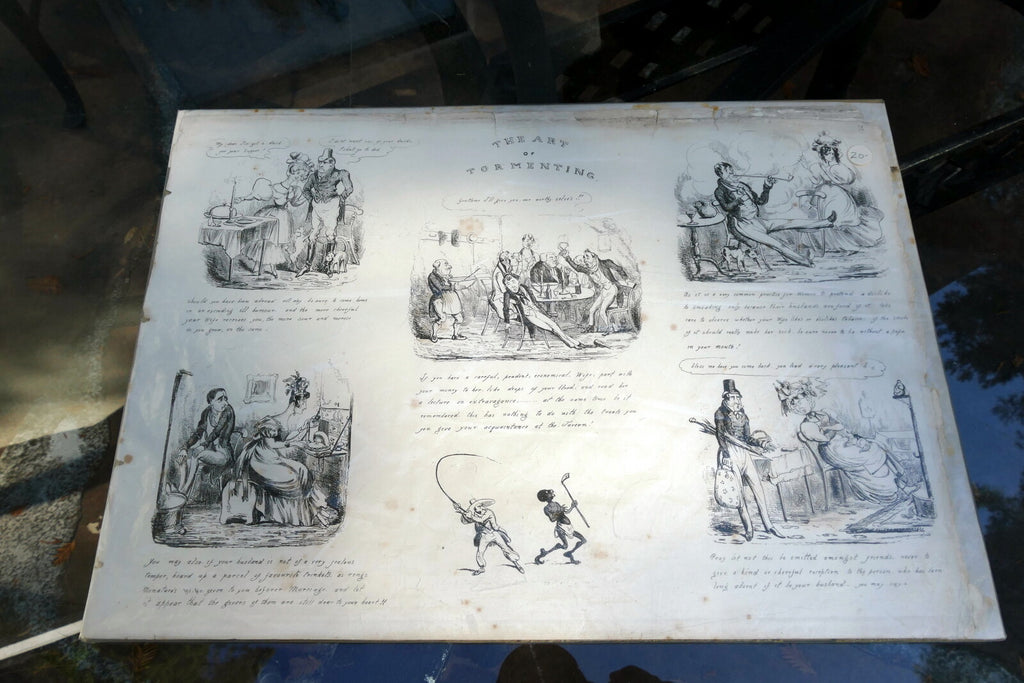 THE ART
OF
TORMENTING.
My dear I've got a
your Supper
20
Gentlemen I'll give you, our noble selves!!
Should you have been abroad
in an exceeding ill humour, and the more chearful
your Wife receives you, the more sour and morose
do you grow, on the same.
As it is a very common practice for Women to pretend a dislike
to smoaking only because their husbands are fond of it, take
care to observe whether your Wife likes or dislikes Tobacco, if the smoke
of it should really make her sick, be sure never to be without a pipe
in your mouth!
If you have a careful, prudent, economical Wife, part with
your money to her, like drops of your blood, and read her
a lecture on extravagance at the same time to be
remembered this has nothing to do with the treats you
give your acquaintance at the Tavern!
Bless me
you come back, you had a very pleasant
You may also if your husband is not of a very jealous
temper, hoard up a parcel of favourite trinkets as rings
Miniatures &c. given to you before Marriage, and let
it appear that the givers of them are still dear to your heart!!
Pray let not this be omitted amongst friends, never to
give a kind or chearful reception to the person, who has been
long absent if it be your husband you may say